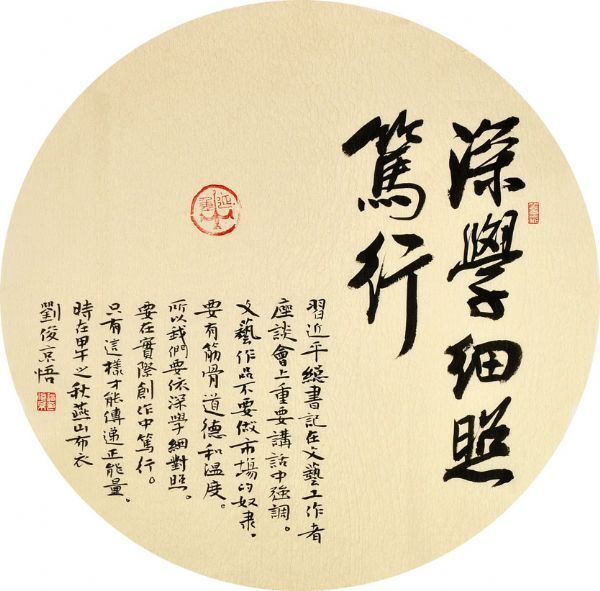 深學細照
篤行
習近平總書記在文藝工作者
座談會上重要講話中強調。
文藝作品不要做市場的奴隶，
要有筋骨道德和溫度。
所以我們要依深學細對照。
要在實際創作中篤行。
只有這樣才能傳遞正能量。
時在甲午之秋燕山布衣
劉俊京悟